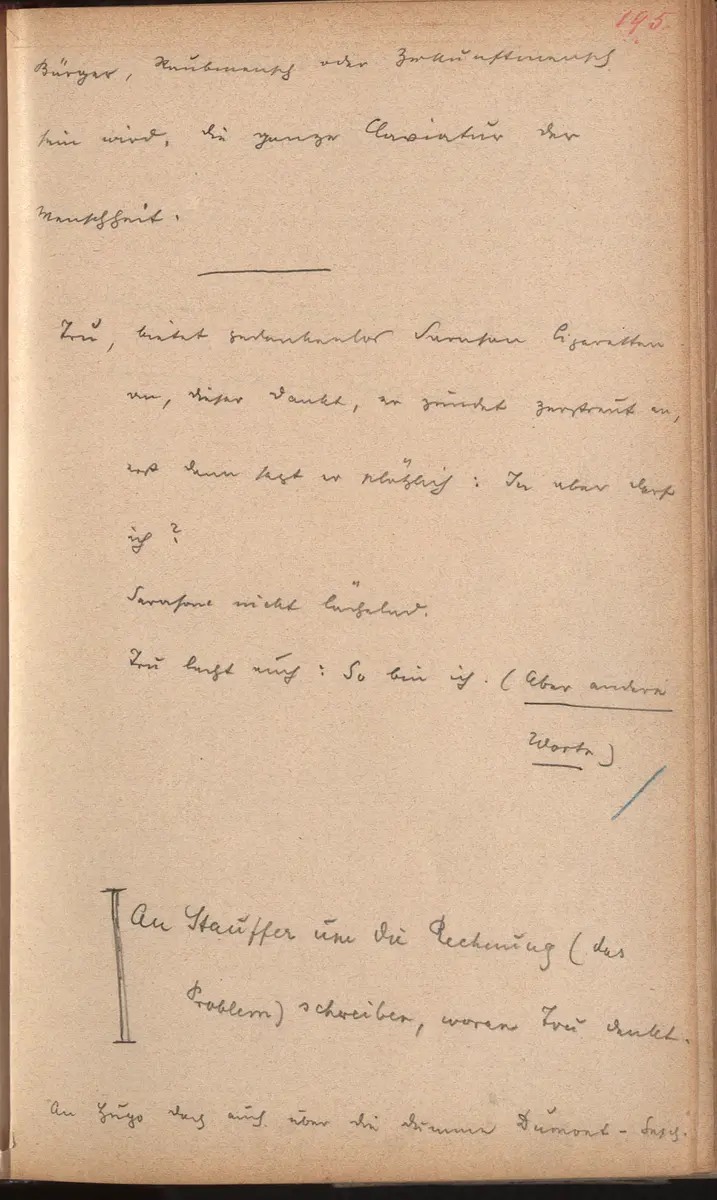 195.
Bürger, Raubmensch oder Zukunftmensch
sein wird, die ganze Claviatur der
Menschheit.
Tru, bietet gedankenlos Sarason Cigaretten
an, dieser dankt, er zündet zerstreut an,
erst dann sagt er plötzlich: Ja aber darf
ich?
Sarason nickt lächelnd.
Tru lacht auch: So bin ich. (Aber andere
Worte)
An Stauffer um die Rechnung (das
Problem) schreiben, woran Tru denkt.
An Hugo doch auch über die dumme Dumont-Gesch.